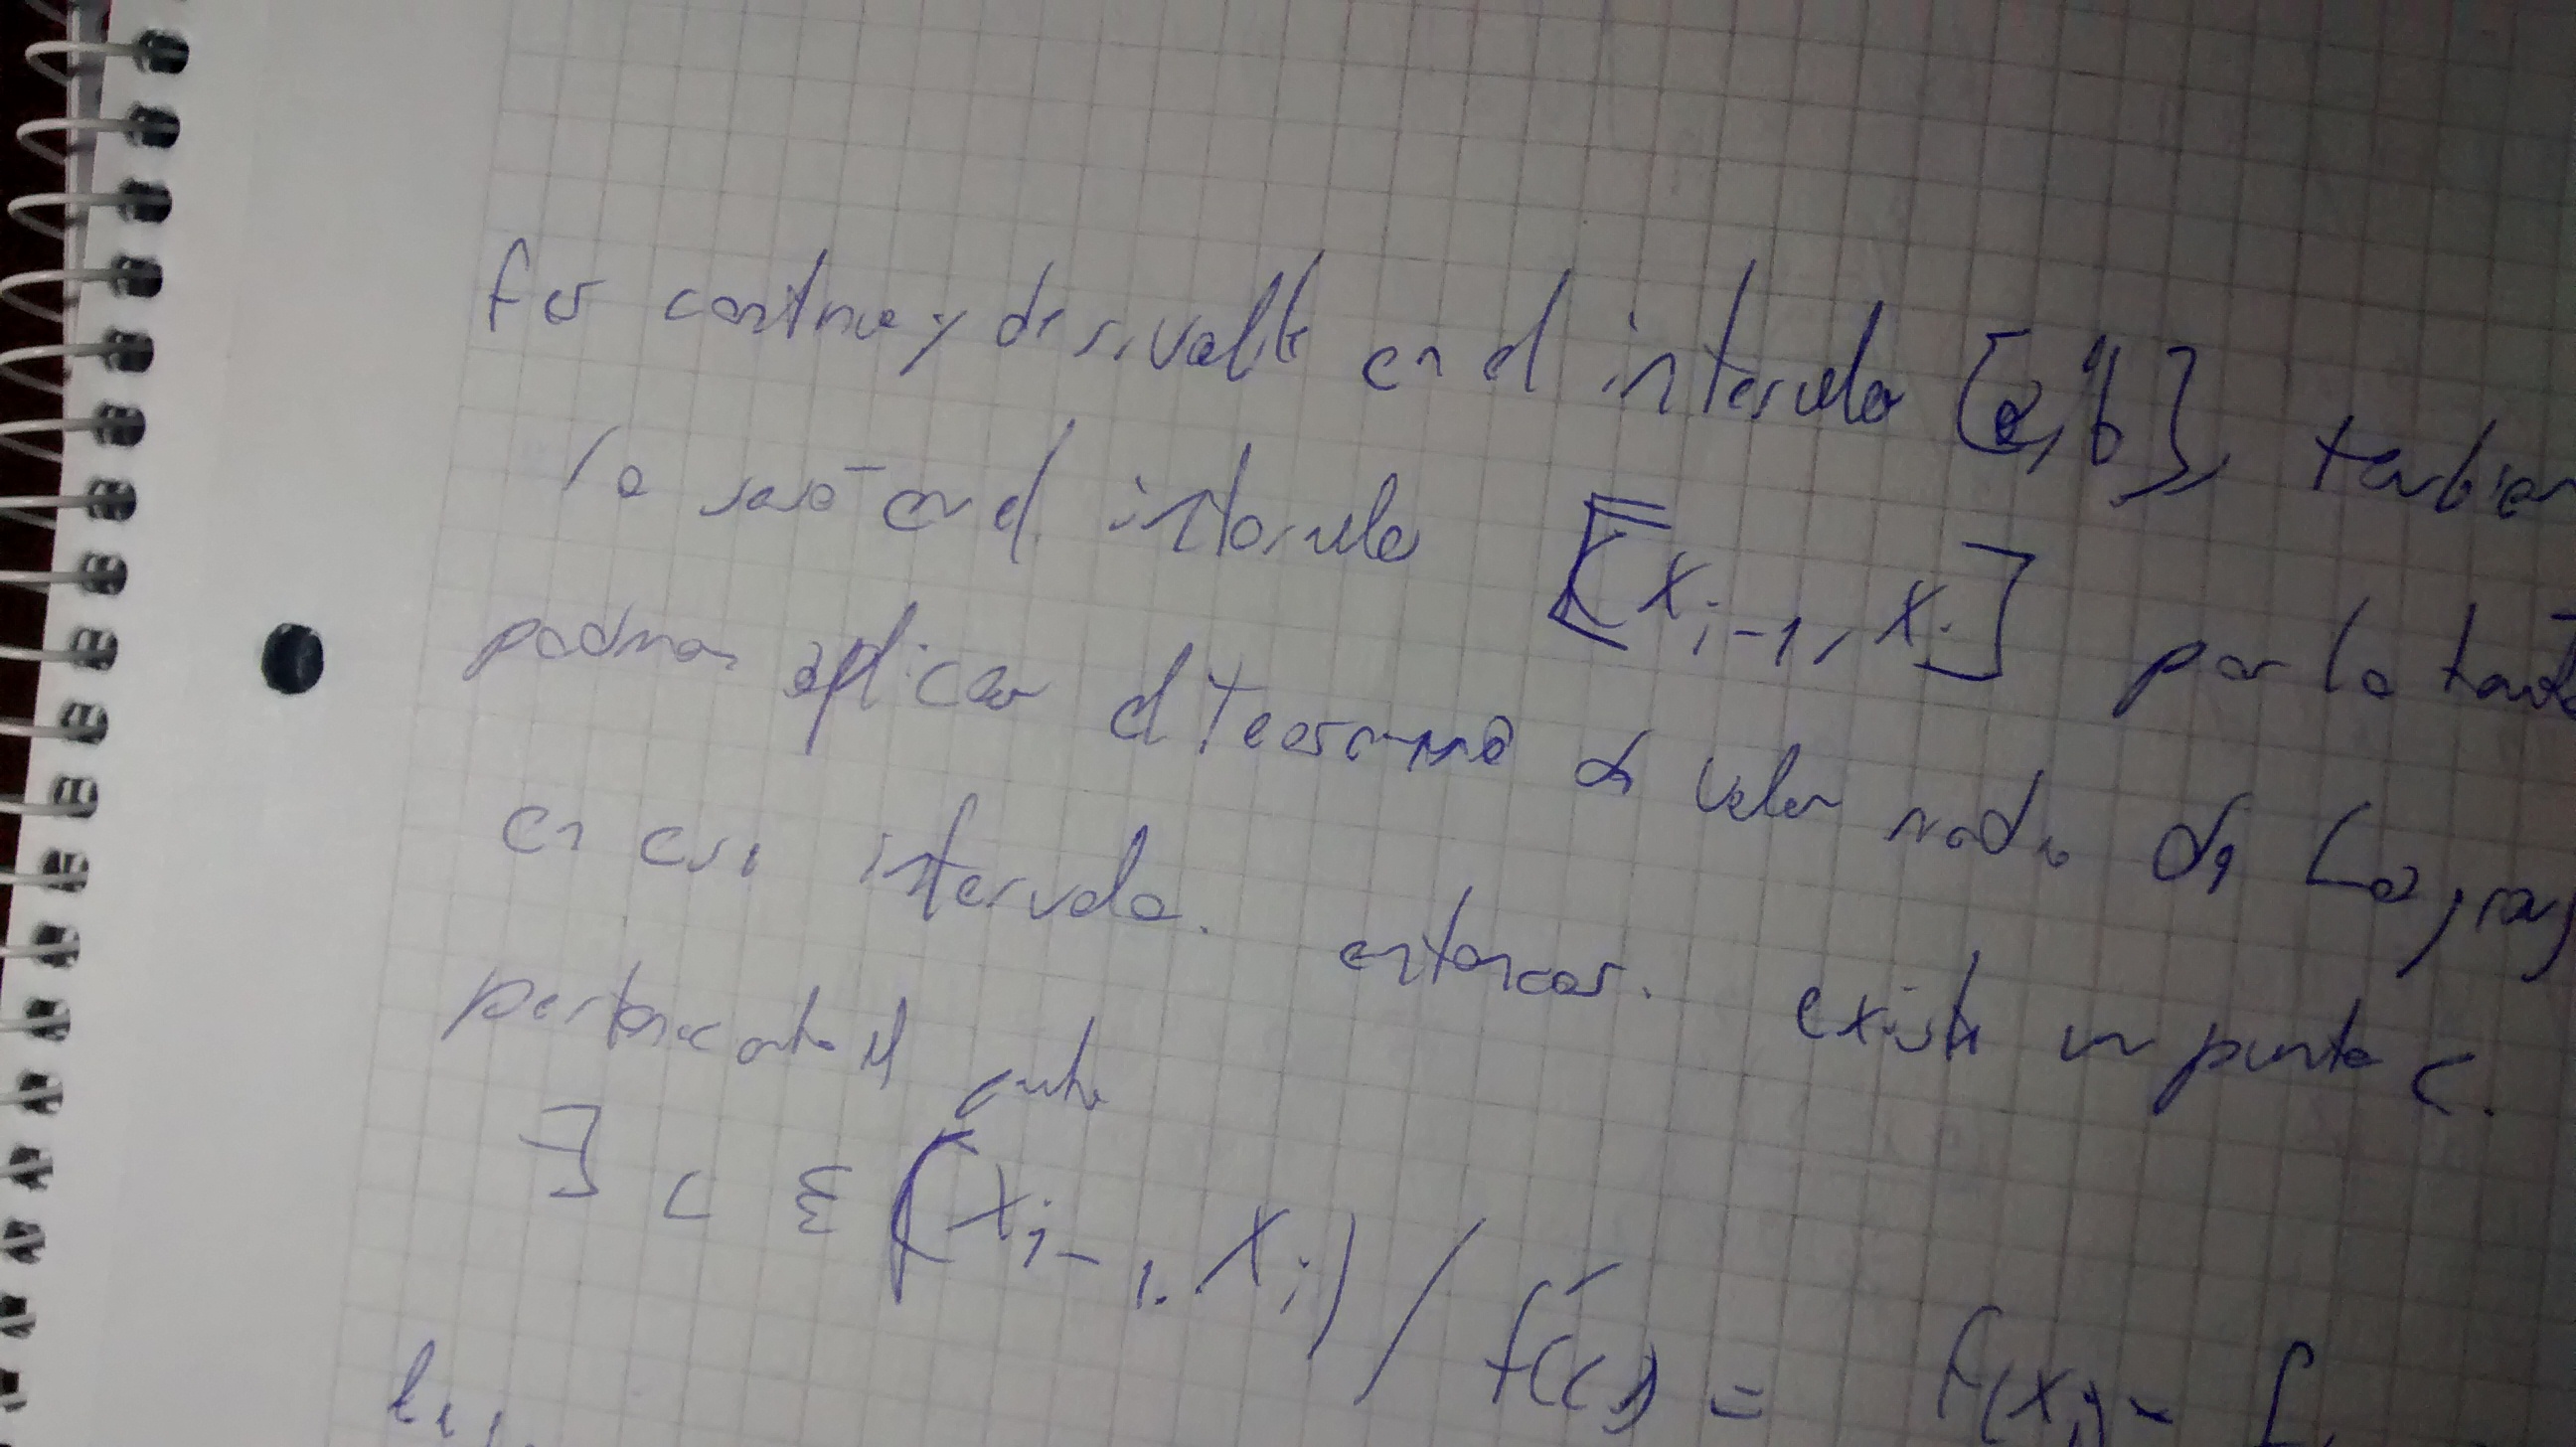 f es continua y derivable en el intervalo [a,b], tambien
lo será en el intervalo [x_{i-1}, x_i] por lo tanto
podemos aplicar el teorema de valor medio de Lagrang
en ese intervalo. entonces. existe un punto c.
perteneciente al
∃ c ∈ (x_{i-1}, x_i) / f'(c) = f(x_i) - f